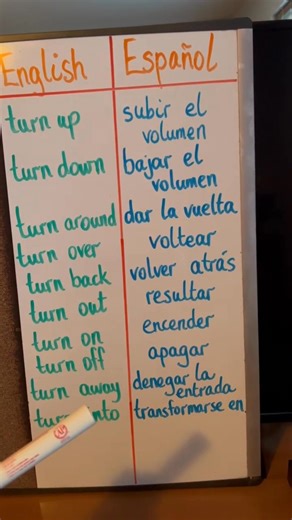 English Español
turn up subir el
volumen
turn down bajar el
volumen
turn around dar la vuelta
turn over voltear
turn back volver atrás
turn out resultar
turn on encender
turn off apagar
turn away denegar la
entrada
turn into transformarse en